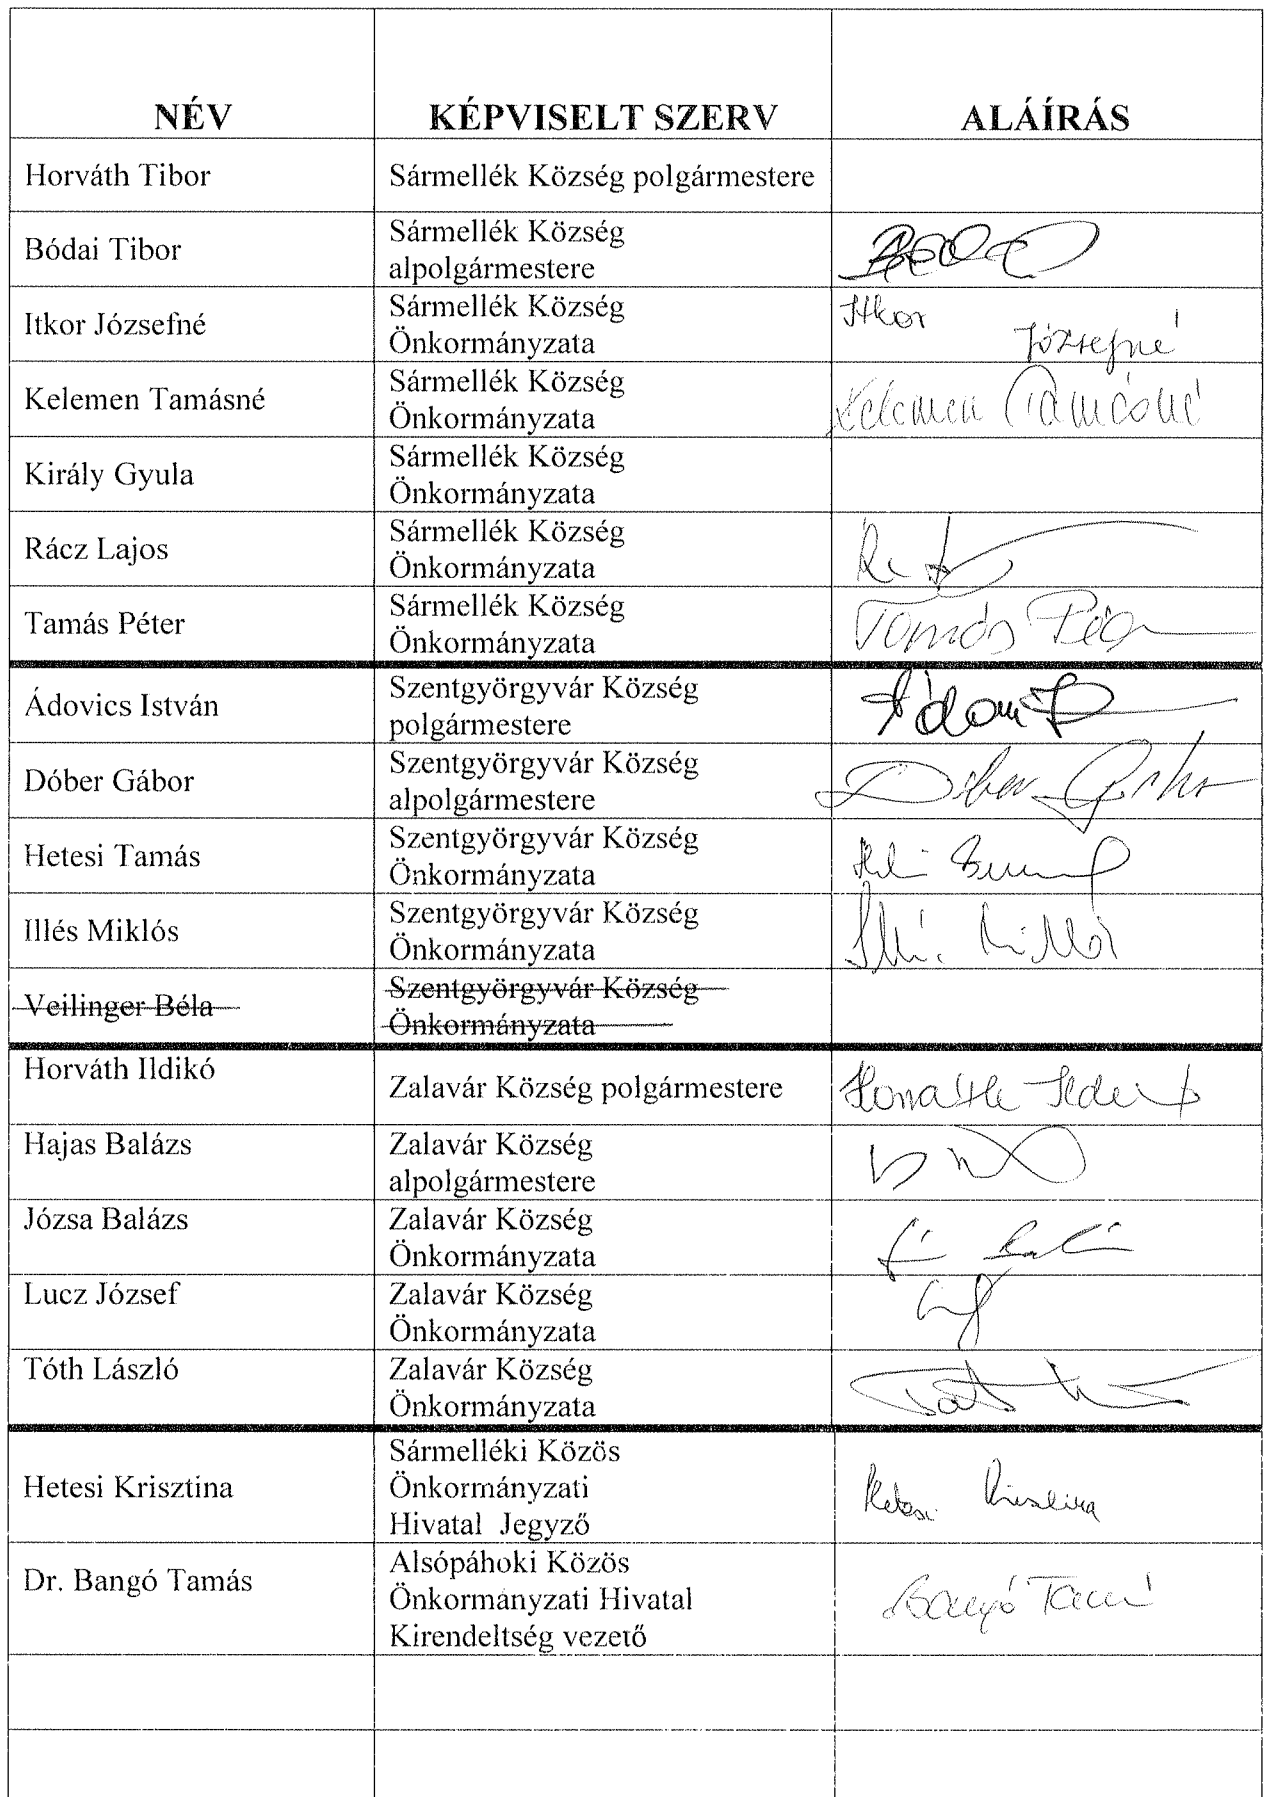 NÉV KÉPVISELT SZERV ALÁÍRÁS
Horváth Tibor Sármellék Község polgármestere
Bódai Tibor Sármellék Község
alpolgármestere
Itkor Józsefné Sármellék Község
Önkormányzata
Itkor
Józsefné
Kelemen Tamásné Sármellék Község
Önkormányzata
Kelemen Tamásné
Király Gyula Sármellék Község
Önkormányzata
Rácz Lajos Sármellék Község
Önkormányzata
Tamás Péter Sármellék Község
Önkormányzata
Tamás Péter
Ádovics István Szentgyörgyvár Község
polgármestere
Dóber Gábor Szentgyörgyvár Község
alpolgármestere
Dóber Gábor
Hetesi Tamás Szentgyörgyvár Község
Önkormányzata
Illés Miklós Szentgyörgyvár Község
Önkormányzata
Illés Miklós
Veilinger Béla Szentgyörgyvár Község
Önkormányzata
Horváth Ildikó Zalavár Község polgármestere
Horváth Ildikó
Hajas Balázs Zalavár Község
alpolgármestere
Józsa Balázs Zalavár Község
Önkormányzata
Lucz József Zalavár Község
Önkormányzata
Tóth László Zalavár Község
Önkormányzata
Hetesi Krisztina Sármelléki Közös
Önkormányzati
Hivatal Jegyző
Hetesi Krisztina
Dr. Bangó Tamás Alsópáhoki Közös
Önkormányzati Hivatal
Kirendeltség vezető
Bangó Tamás